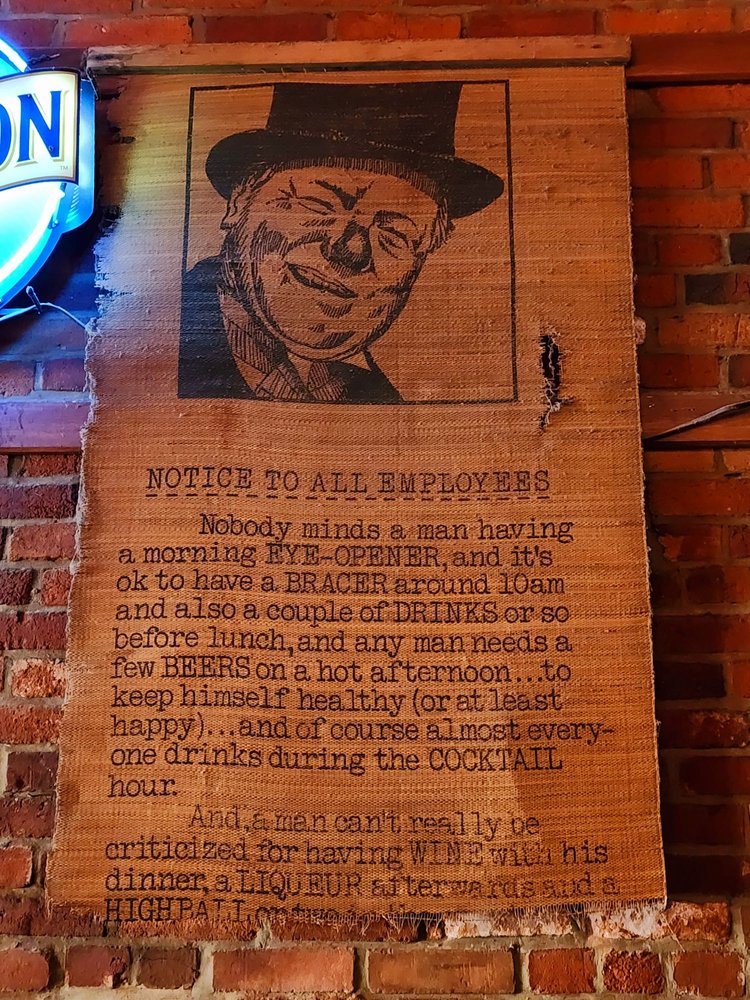 ON
TM
NOTICE TO ALL EMPLOYEES
Nobody minds a man having
a morning EYE-OPENER, and it's
ok to have a BRACER around 10am
and also a couple of DRINKS or so
before lunch, and any man needs a
few BEERS on a hot afternoon...to
keep himself healthy (or at least
happy)...and of course almost every-
one drinks during the COCKTAIL
hour.
And, a man can't really be
criticized for having WINE with his
dinner, a LIQUEUR afterwards and a
HIGHBALL